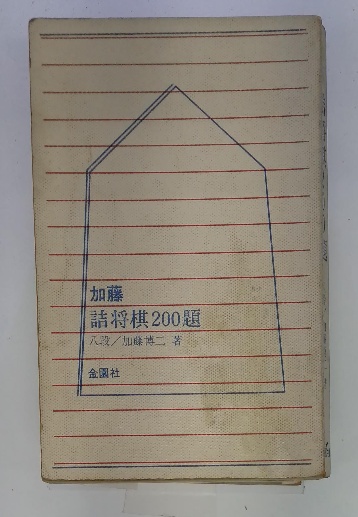 加藤
詰将棋200題
八段／加藤博二 著
金園社